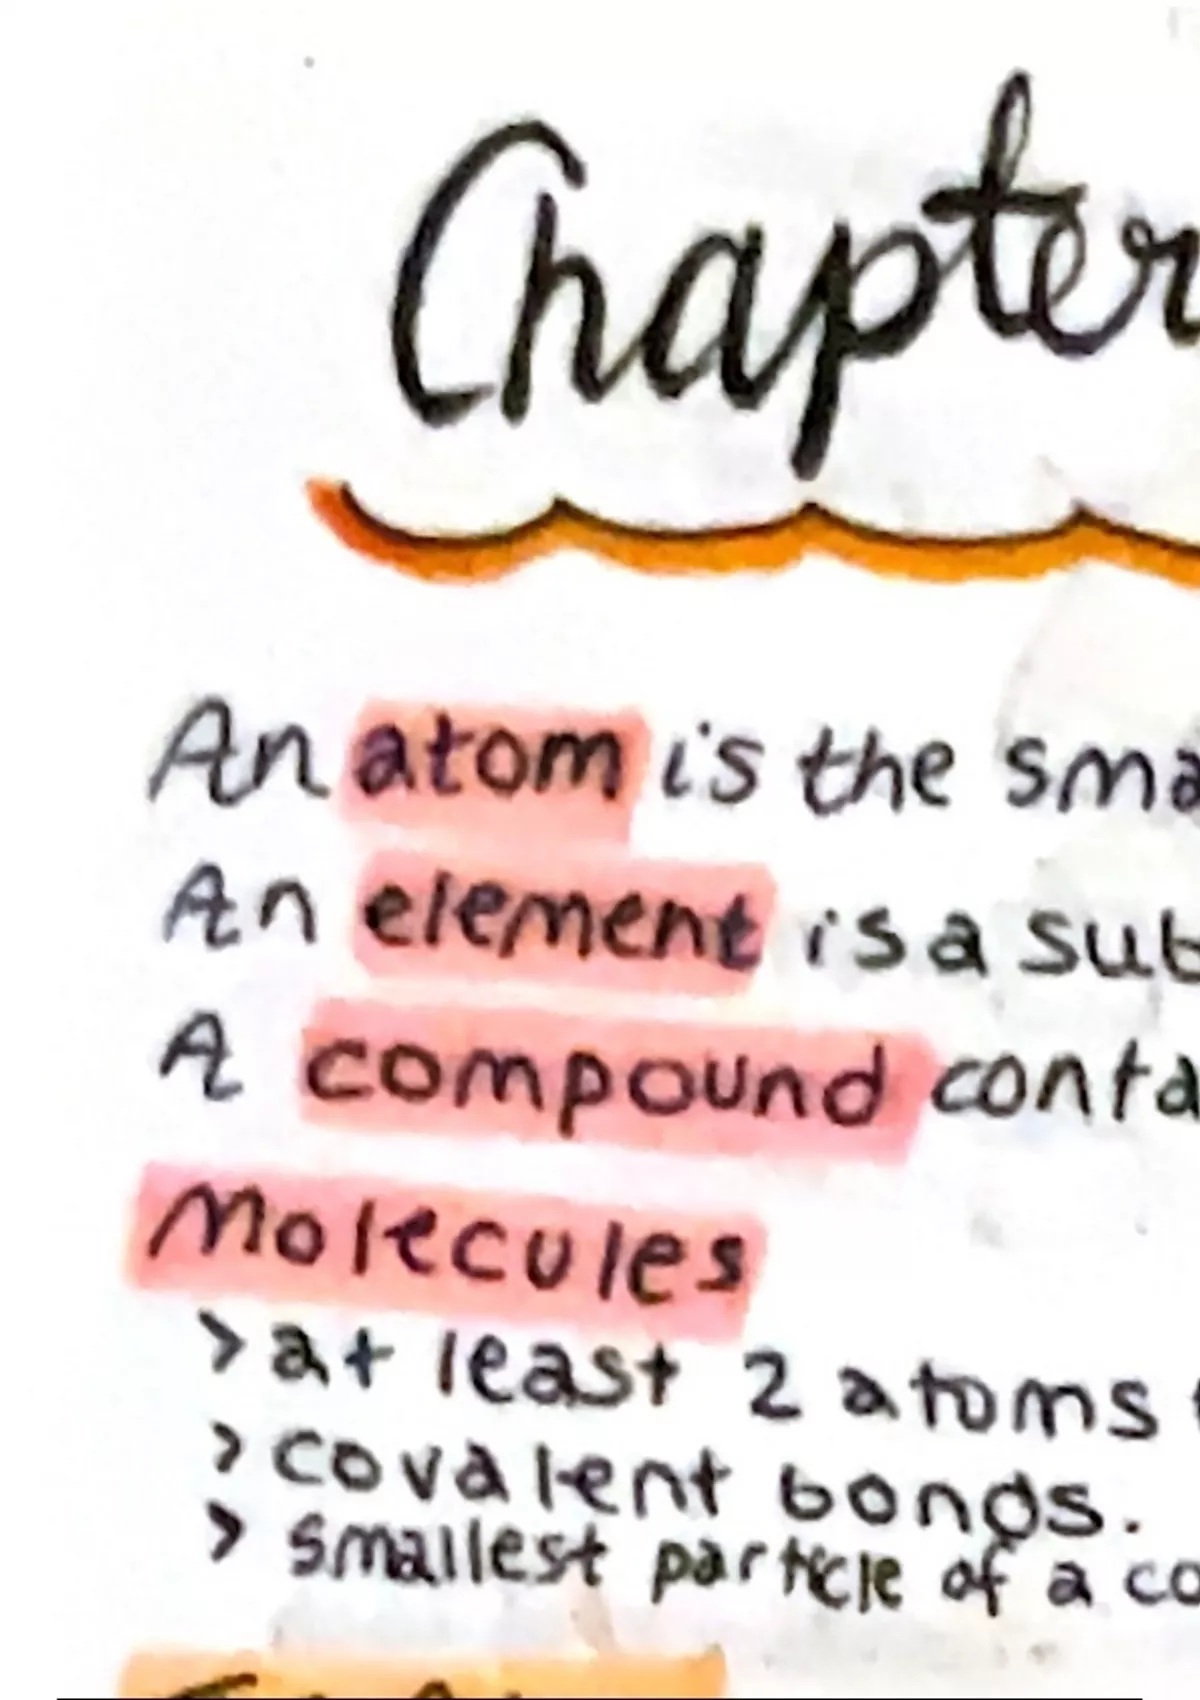 Chapter
An atom is the sma
An element is a sub
A compound conta
Molecules
> at least 2 atoms
> covalent bonds.
> smallest particle of a co